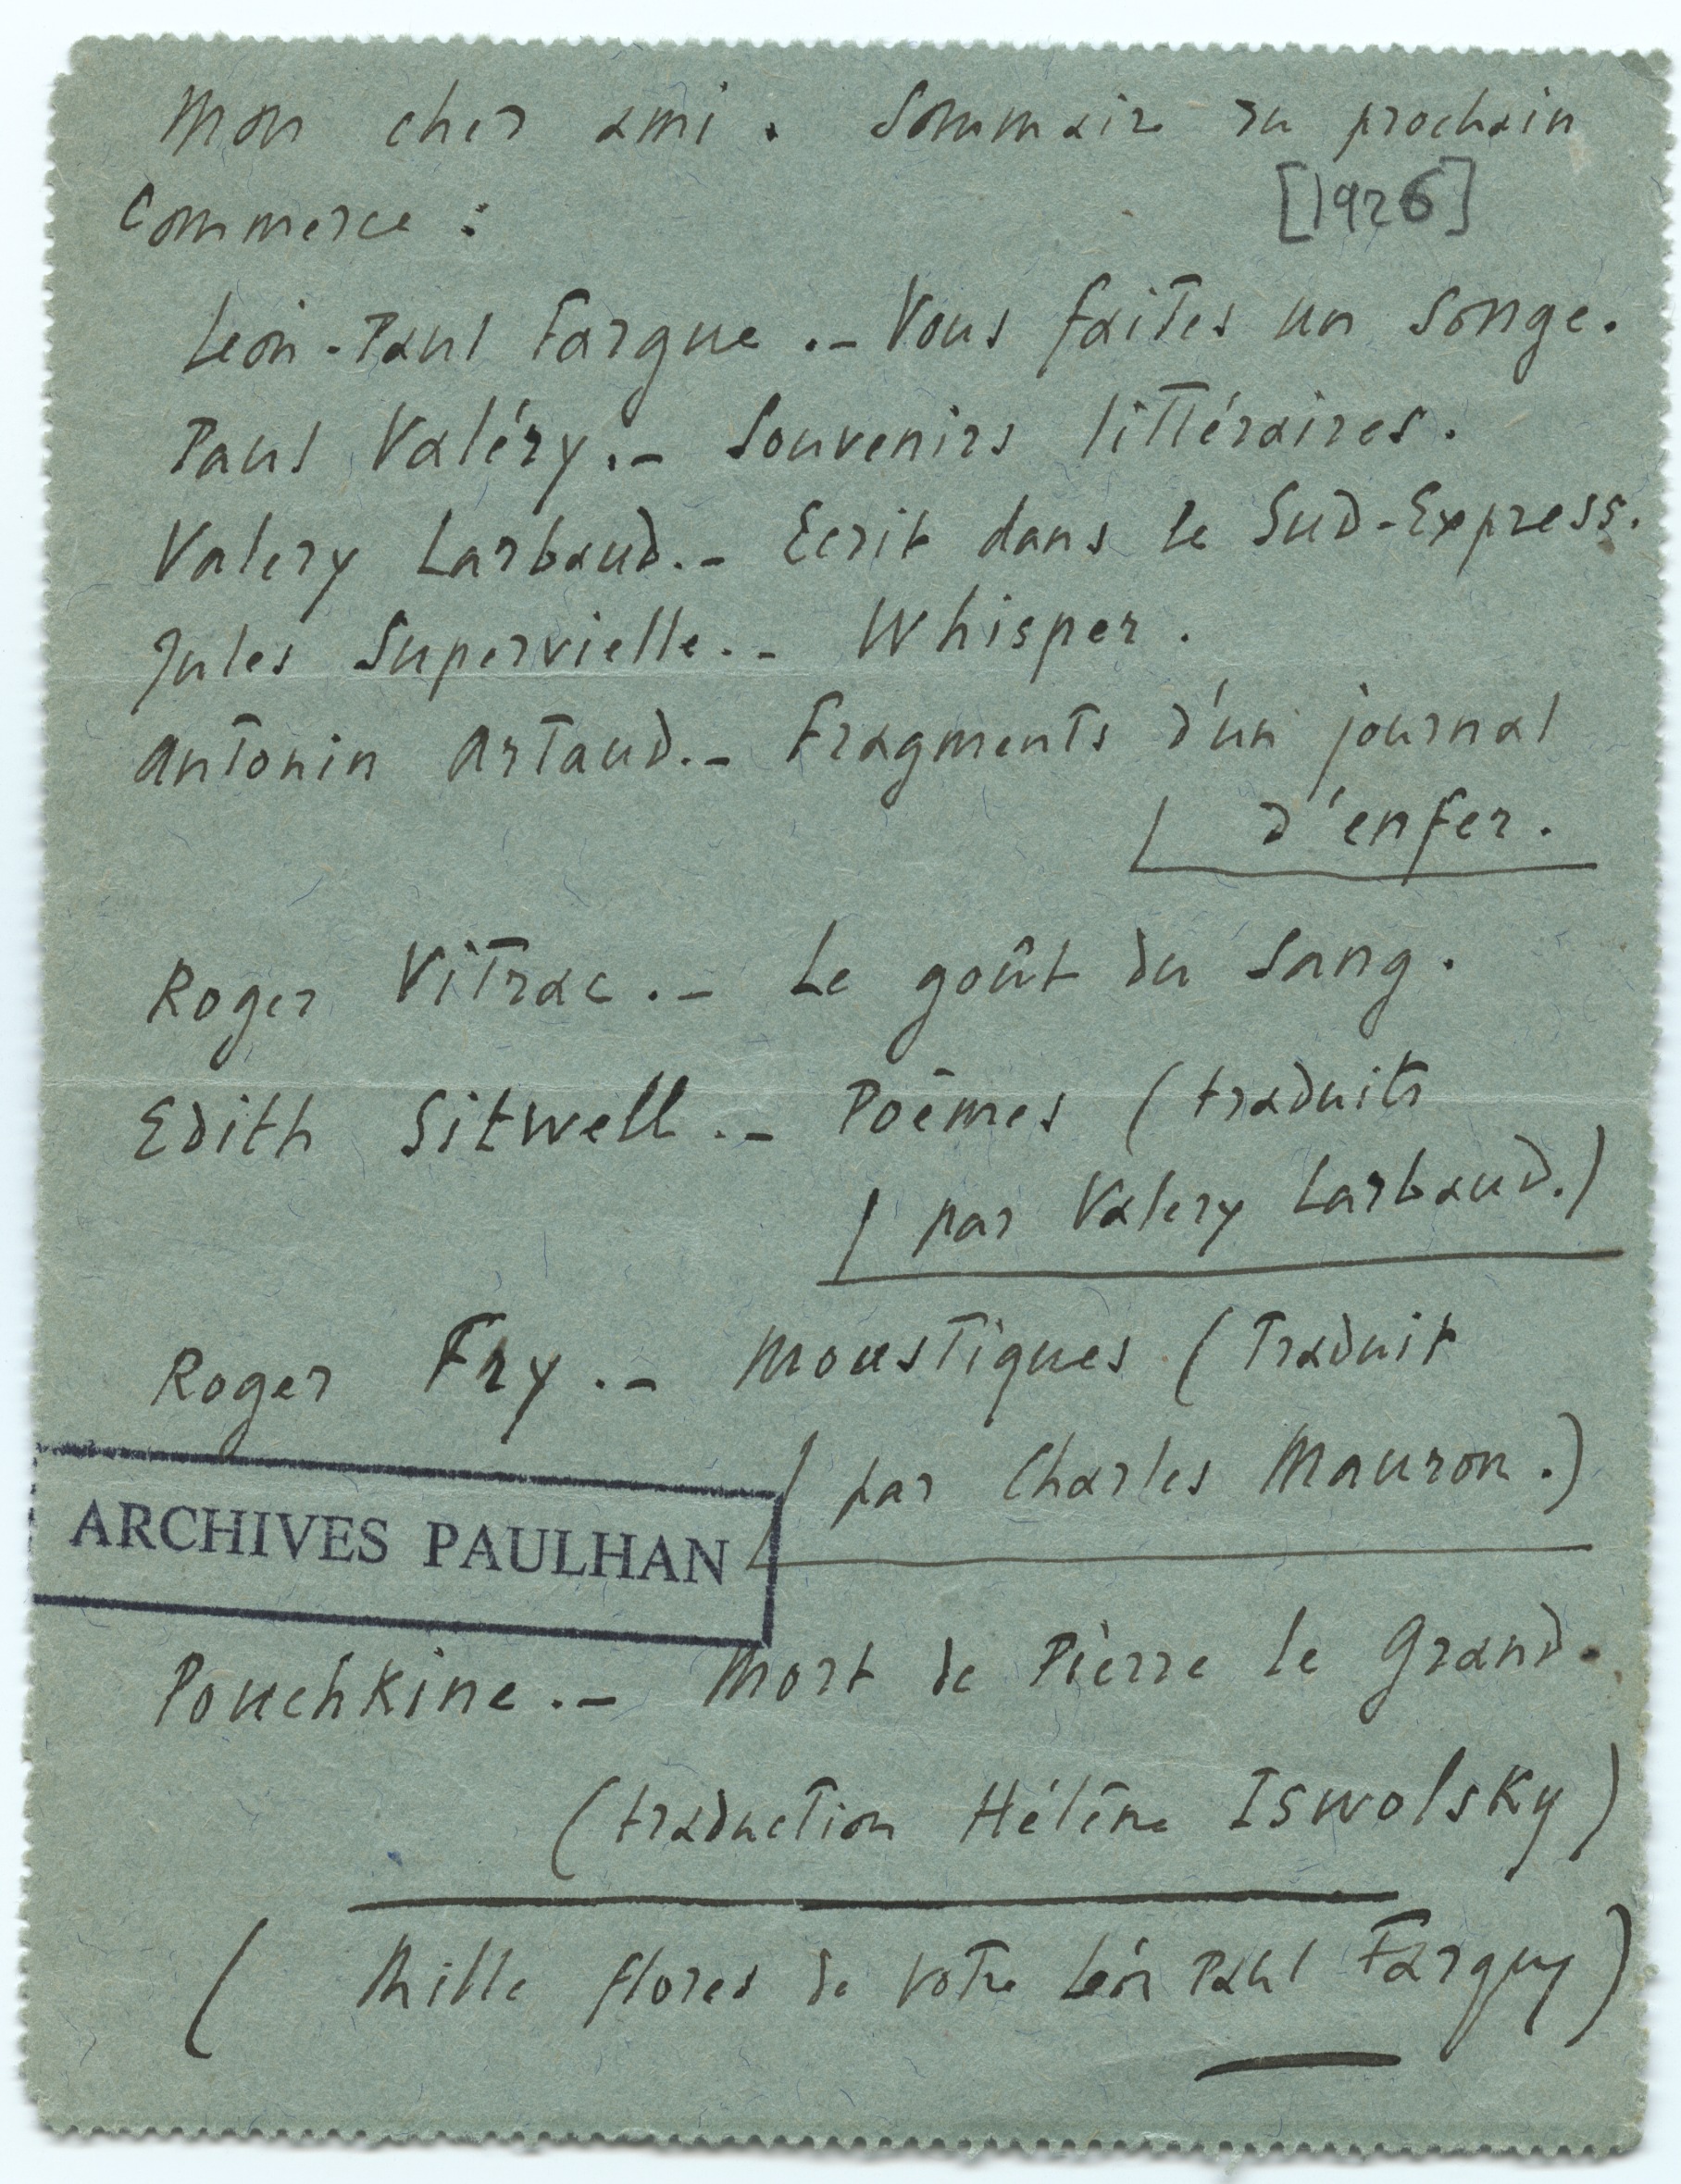 Mon cher ami. Sommaire du prochain
[1926]
Commerce :
Léon-Paul Fargue .– Vous faites un songe.
Paul Valéry.– Souvenirs littéraires.
Valery Larbaud.– Ecrit dans le Sud-Express.
Jules Supervielle.– Whisper.
Antonin Artaud.– Fragments d'un journal
d'enfer.
Roger Vitrac.– Le goût du Sang.
Edith Sitwell.– Poèmes (traduits
par Valery Larbaud.)
Roger Fry.– Moustiques (Traduit
par Charles Mauron.)
ARCHIVES PAULHAN
Pouchkine.– Mort de Pierre le Grand.
(traduction Hélène Iswolsky)
(Mille flores de votre Léon Paul Farguy)